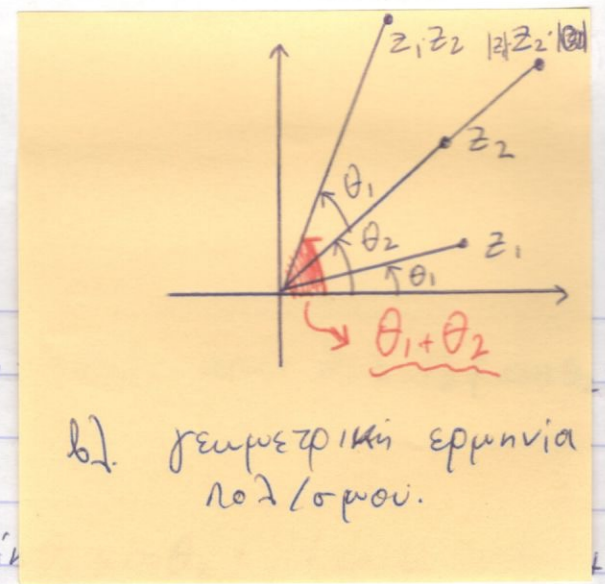 z₁z₂ |z₁|z₂
z₂
θ₁
θ₂
z₁
θ₁
θ₁+θ₂
βλ. γεωμετρική ερμηνία
πολ/σμού.